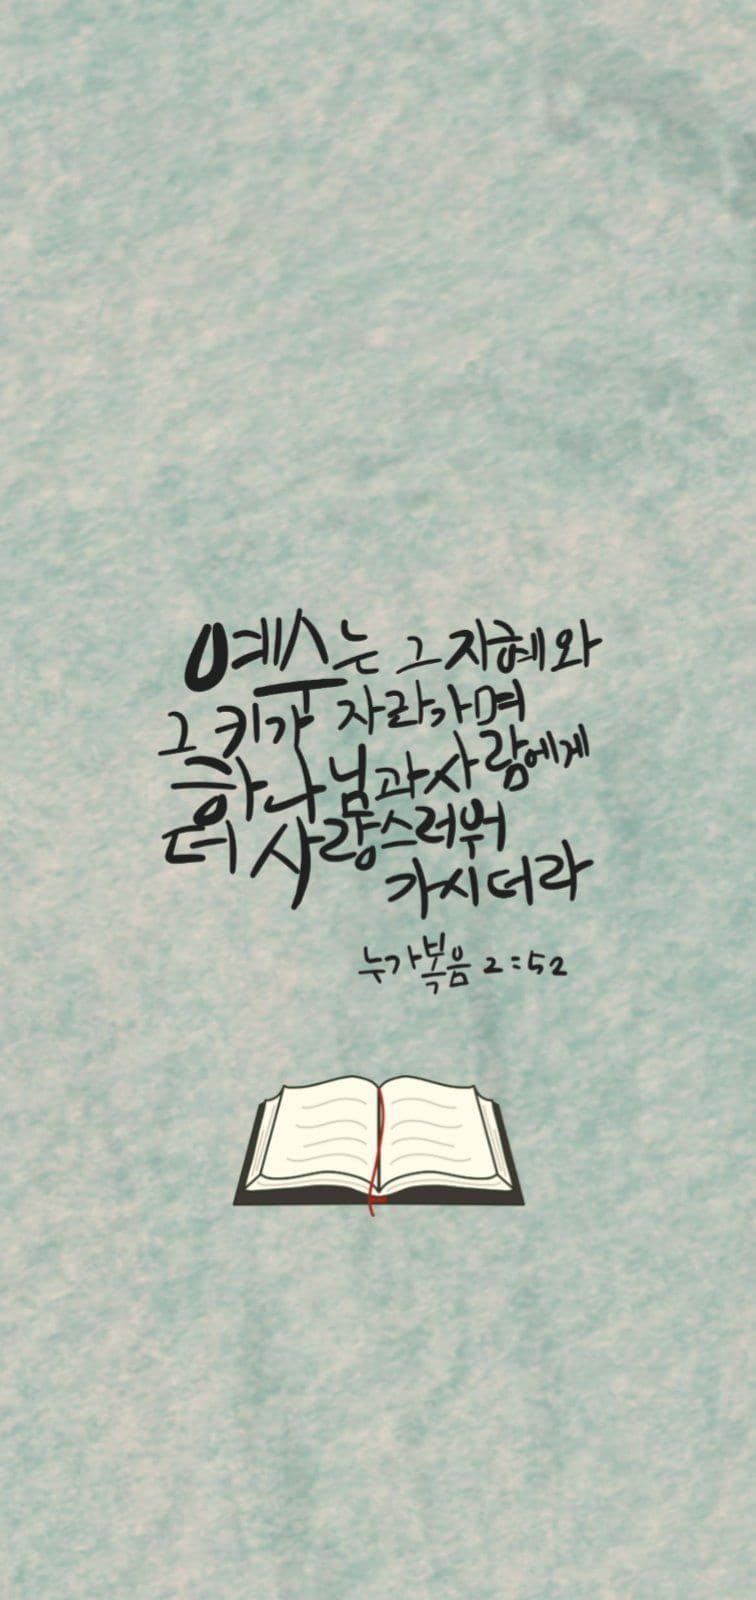 예수는 그 지혜와
그 키가 자라가며
하나님과 사람에게
더 사랑스러워
가시더라
누가복음 2:52